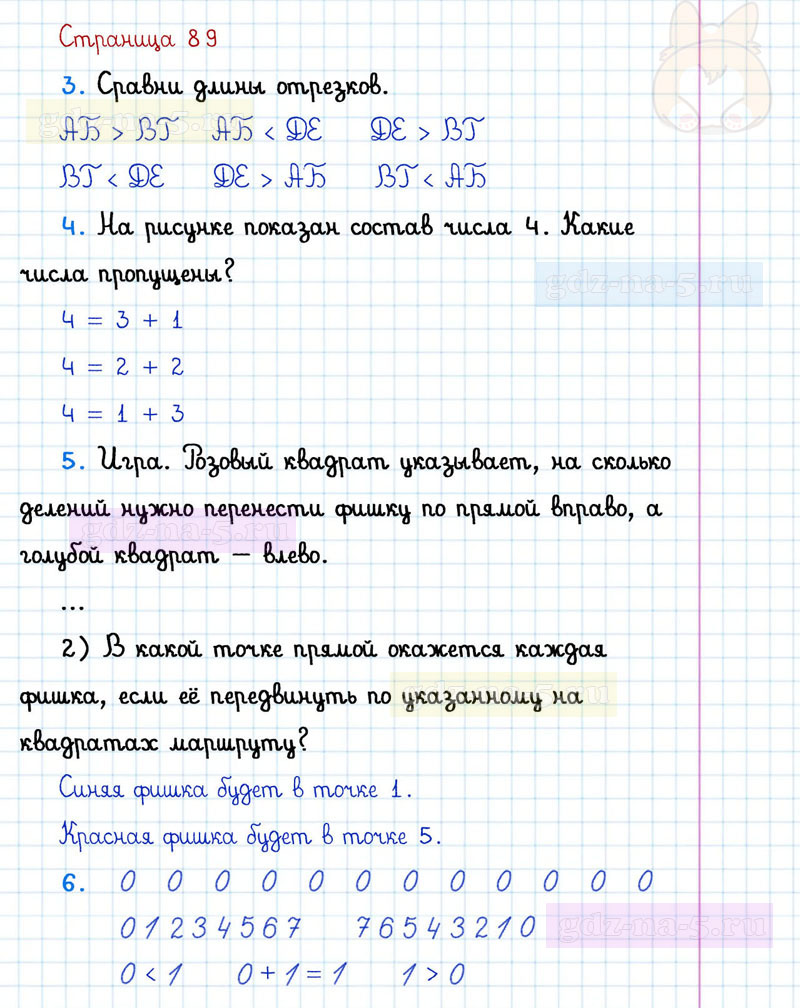 Страница 89
3. Сравни длины отрезков.
gdz-na-5.ru
АБ > ВГ АБ < ДЕ ДЕ > ВГ
ВГ < ДЕ ДЕ > АБ ВГ < АБ
4. На рисунке показан состав числа 4. Какие
числа пропущены?
gdz-na-5.ru
4 = 3 + 1
4 = 2 + 2
4 = 1 + 3
5. Игра. Розовый квадрат указывает, на сколько
делений нужно перенести фишку по прямой вправо, а
gdz-na-5.ru
голубой квадрат — влево.
...
2) В какой точке прямой окажется каждая
фишка, если её передвинуть по указанному на
gdz-na-5.ru
квадратах маршруту?
Синяя фишка будет в точке 1.
Красная фишка будет в точке 5.
6. 0 0 0 0 0 0 0 0 0 0 0 0
0 1 2 3 4 5 6 7 7 6 5 4 3 2 1 0
gdz-na-5.ru
0 < 1 0 + 1 = 1 1 > 0